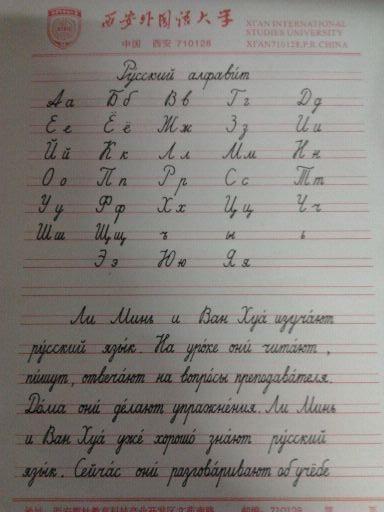 西安外国语大学
XI'AN INTERNATIONAL
STUDIES UNIVERSITY
中国 西安 710128
XI'AN 710128, P.R. CHINA
Ру́сский алфави́т
Аа Бб Вв Гг Дд
Ее Ёё Жж Зз Ии
Йй Кк Лл Мм Нн
Оо Пп Рр Сс Тт
Уу Фф Хх Цц Чч
Шш Щщ ъ ы ь
Ээ Юю Яя
Ли Минь и Ван Хуа́ изуча́ют
ру́сский язы́к. На уро́ке они́ чита́ют,
пи́шут, отвеча́ют на вопро́сы преподава́теля.
До́ма они́ де́лают упражне́ния. Ли Минь
и Ван Хуа́ уже́ хорошо́ зна́ют ру́сский
язы́к. Сейча́с они́ разгова́ривают об учёбе
邮编: 710128 第 页